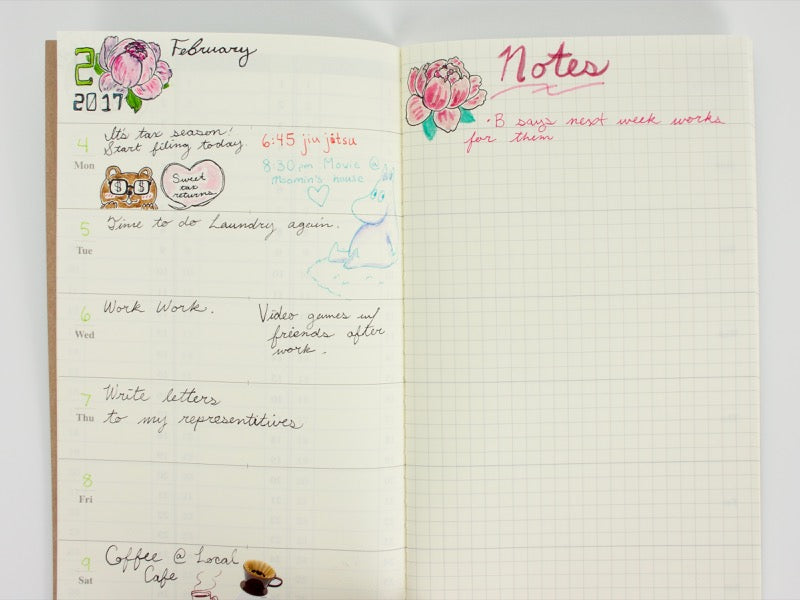 2
2017
February
4
Mon
It's tax season!
Start filing today.
Sweet
tax
returns
6:45 jiu jitsu
8:30pm Movie @
Moomin's house
5
Tue
Time to do Laundry again.
6
Wed
Work Work.
Video games w/
friends after
work.
7
Thu
Write letters
to my representitives
8
Fri
9
Sat
Coffee @ Local
Cafe
Notes
· B says next week works
for them